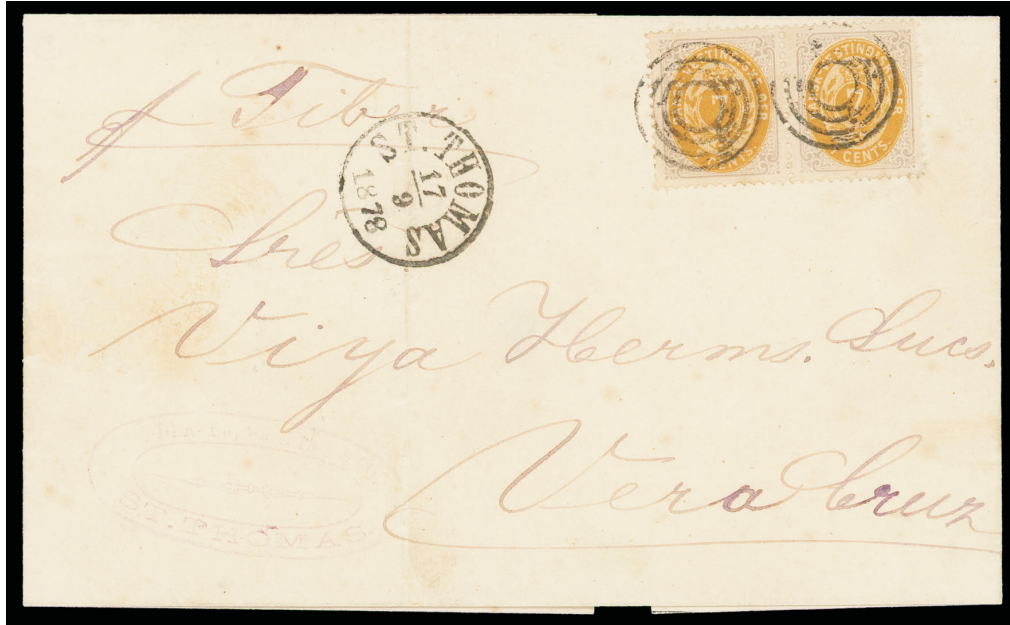 p Tiber
ST. THOMAS
17
9
1878
7
CENTS.
7
CENTS.
Sres
Viya Herms. Sucs.
Vera Cruz
ST. THOMAS